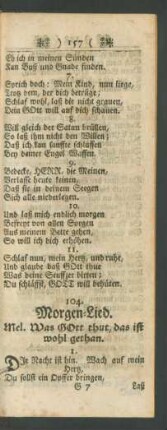 ) 157 (
Ob ich in meinen Sünden
Kan Buß und Gnade finden.
7.
Sprich doch: Mein Kind, nun liege,
Trotz dem, der dich betrüge;
Schlaf wohl, laß dir nicht grauen,
Dein GOtt will auf dich schauen.
8.
Will gleich der Satan brüllen,
So laß ihm nicht den Willen,
Daß ich kan sanffte schlaffen
Bey deiner Engel Waffen.
9.
Bedecke, HERR, die Meinen,
Verlasse heute keinen,
Daß sie in deinem Segen
Sich alle niederlegen.
10.
Und laß mich endlich morgen
Befreyt von allen Sorgen
Aus meinem Bette gehen,
So will ich dich erhöhen.
11.
Schlaf nun, mein Hertz, und ruhe,
Und glaube daß GOtt thue
Was deine Seuffzer bitten;
Du schläffst, GOtt will behüten.
104.
Morgen-Lied.
Mel. Was GOtt thut, das ist
wohl gethan.
1.
DIe Nacht ist hin. Wach auf mein
Hertz,
Du sollst ein Opffer bringen,
G 7 Laß